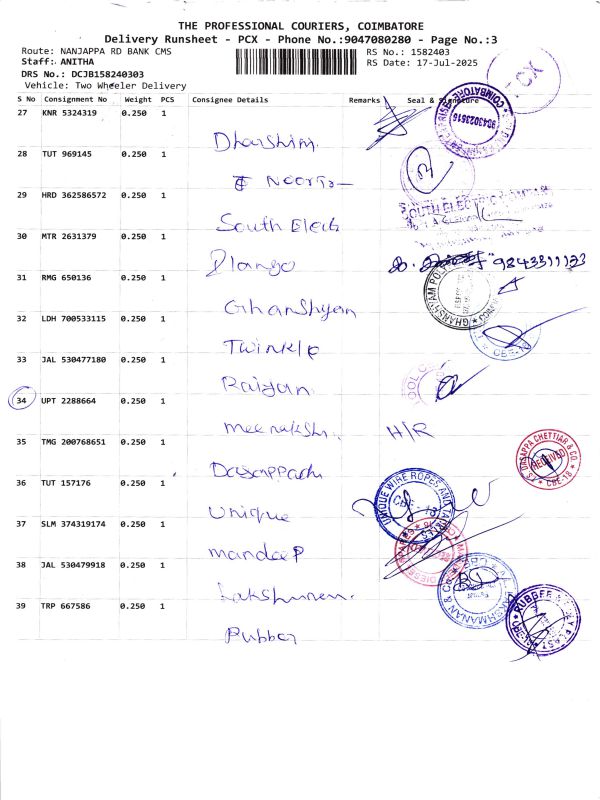 THE PROFESSIONAL COURIERS, COIMBATORE
Delivery Runsheet - PCX - Phone No.:9047080280 - Page No.:3
Route: NANJAPPA RD BANK CMS
RS No.: 1582403
Staff: ANITHA
RS Date: 17-Jul-2025
DRS No.: DCJB158240303
Vehicle: Two Wheeler Delivery
PCX
S No Consignment No Weight PCS Consignee Details Remarks Seal & Signature
27 KNR 5324319 0.250 1
Dharshini
COIMBATORE
9043023516
28 TUT 969145 0.250 1
29 HRD 362586572 0.250 1
South Elect
SOUTH ELECTRIC COMPANY
30 MTR 2631379 0.250 1
Ilango
9843311123
31 RMG 650136 0.250 1
Ghanshyam
GHANSHYAM POLY
32 LDH 700533115 0.250 1
Twinkle
CBE-18
33 JAL 530477180 0.250 1
Raigan
34 UPT 2288664 0.250 1
meenakshi
H/R
35 TMG 200768651 0.250 1
Dasappachi
DASAPPA CHETTIAR & CO.
RECEIVED
CBE-18
36 TUT 157176 0.250 1
Unique
UNIQUE WIRE ROPES AND
CBE-18
37 SLM 374319174 0.250 1
mandeep
38 JAL 530479918 0.250 1
Lakshmanan
LAKSHMANAN & CO
39 TRP 667586 0.250 1
Rubber
RUBBER